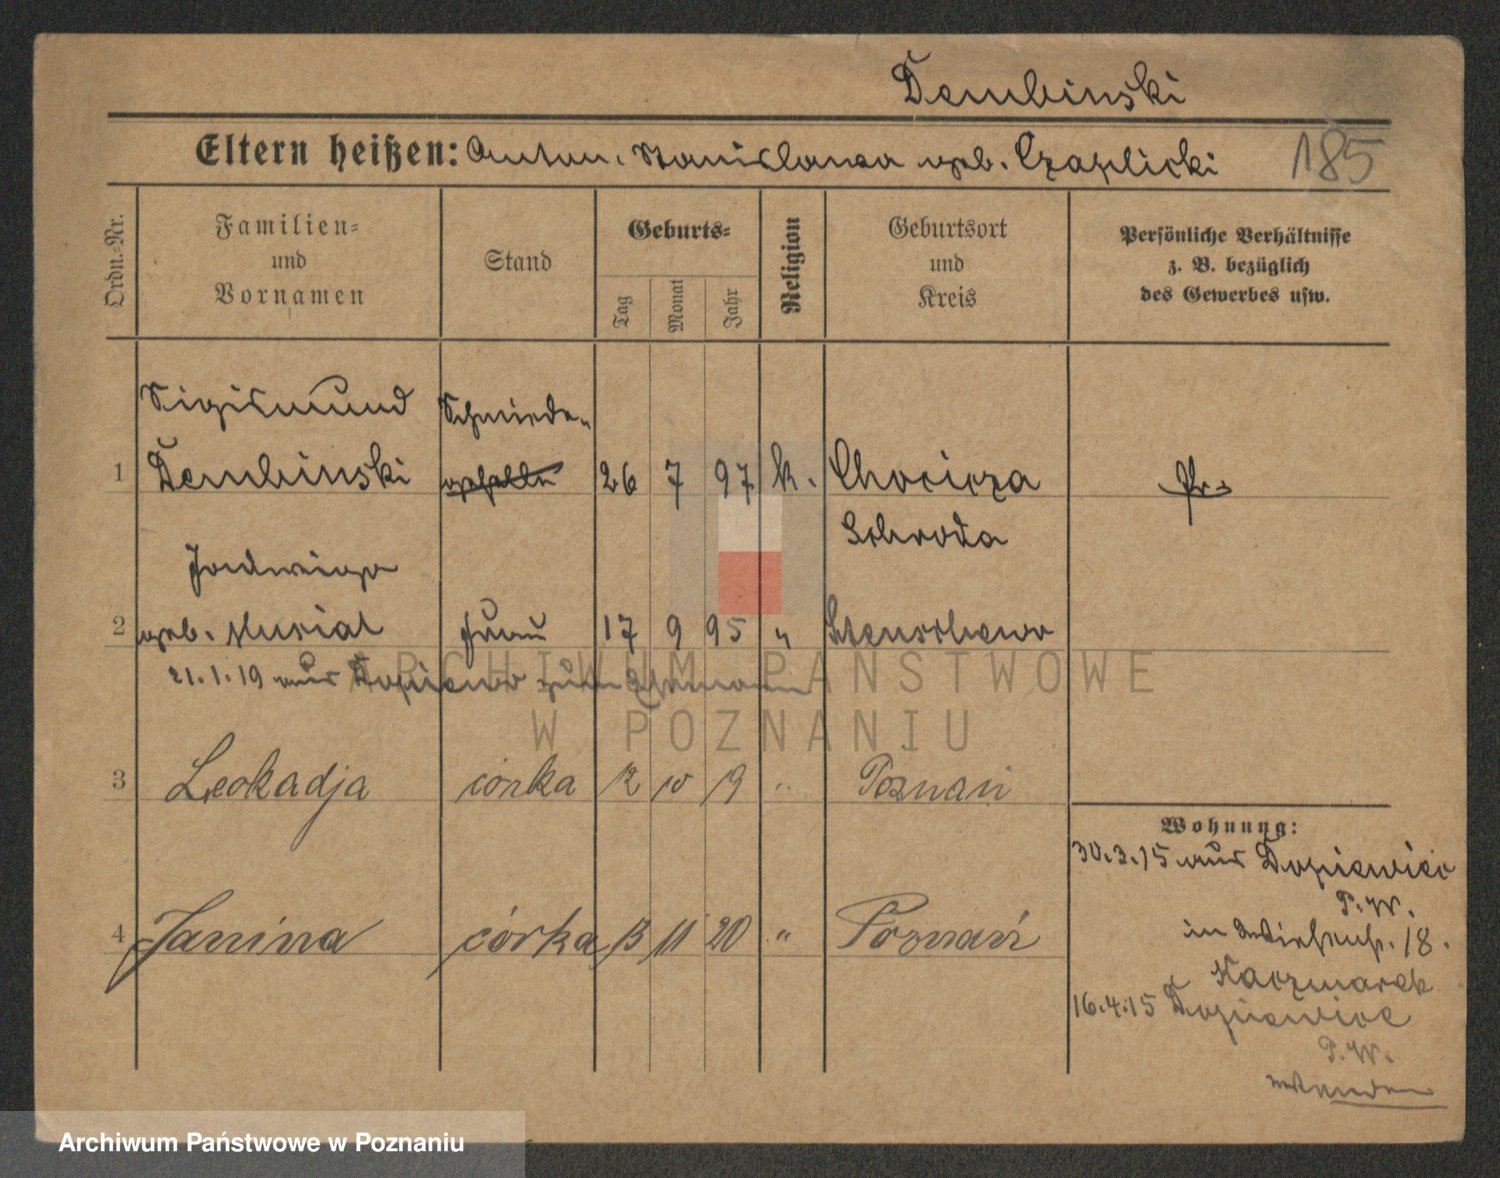 Dembinski
Eltern heißen: Anton, Stanislawa geb. Czaplicki
185
Ordn.-Nr.
Familien-
und
Vornamen
Stand
Geburts-
Tag
Monat
Jahr
Religion
Geburtsort
und
Kreis
Persönliche Verhältnisse
z. B. bezüglich
des Gewerbes usw.
Sigismund Schmiede-
1 Dembinski geselle 26 7 97 k. Chocicza Pr.
Schroda
Jadwiga
2 geb. Musial Frau 17 9 95 " Stenschewo
21.1.19 aus Dopiewo zum Ehemann
3 Leokadja córka 12 10 19 " Poznań
4 Janina córka 13 11 20 " Poznań
Wohnung:
30.3.15 aus Dopiewiec
P.W.
in 18.
Kaczmarek
16.4.15 Dopiewice
P.W.
ARCHIWUM PAŃSTWOWE
W POZNANIU
Archiwum Państwowe w Poznaniu